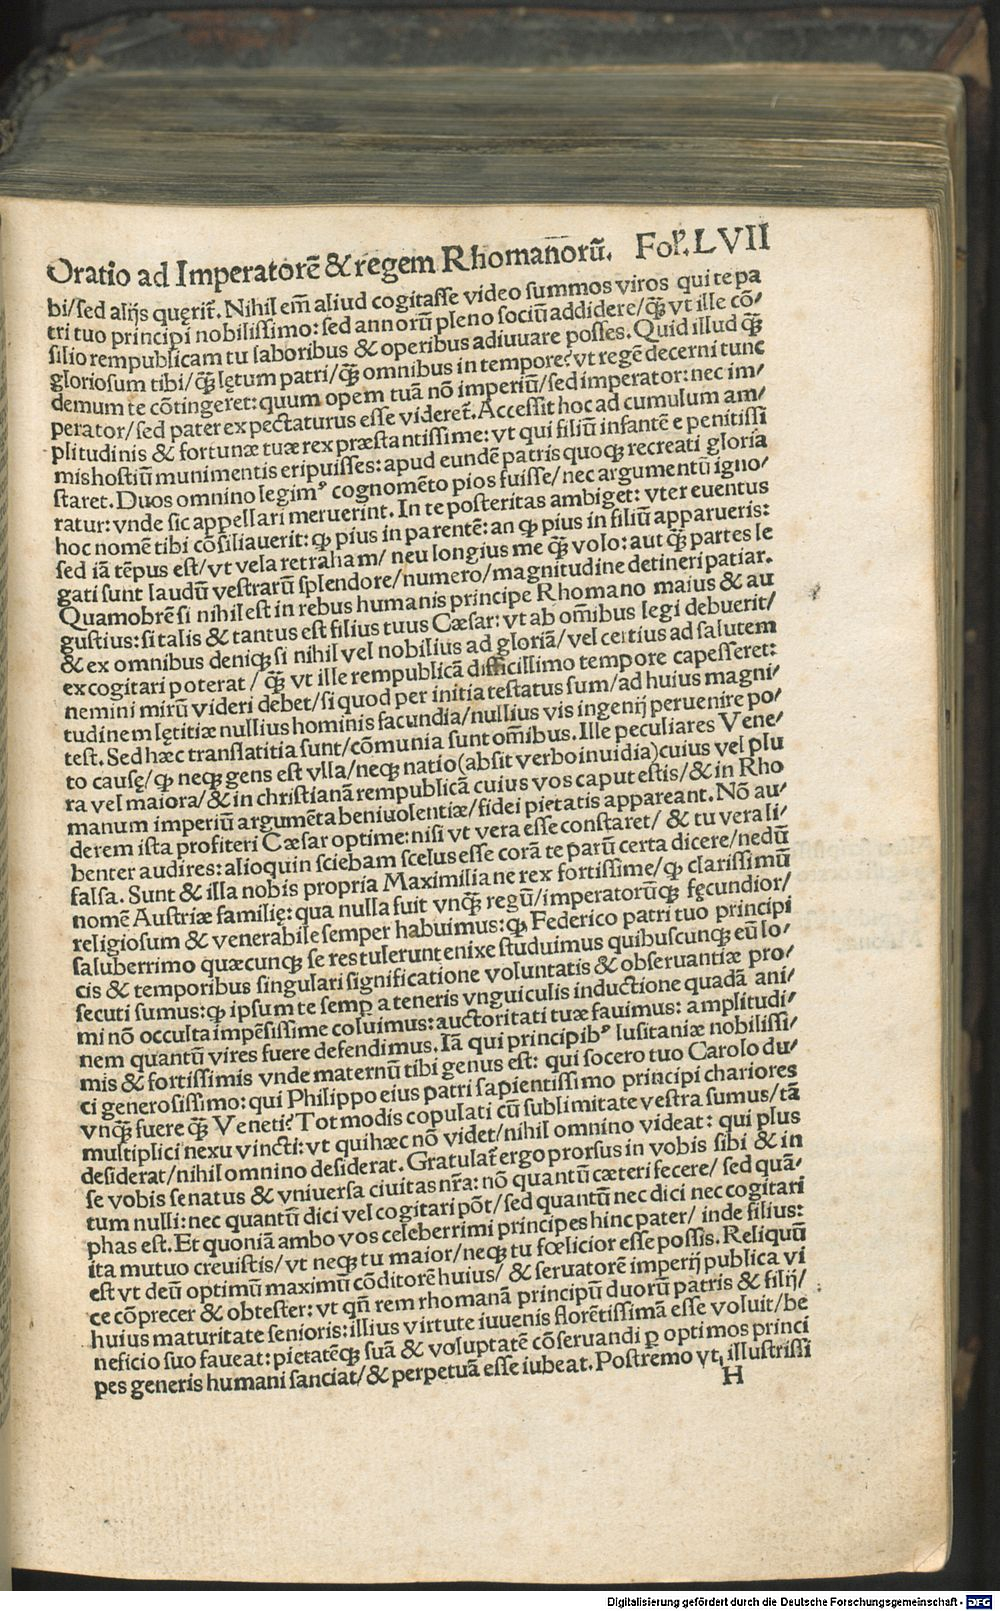 Oratio ad Imperatorē & regem Rhomanorū. Folº. LVII
bi/sed alijs quęrit̃. Nihil em̄ aliud cogitasse video summos viros qui te pa
tri tuo principi nobilissimo: sed annorū pleno sociū addidere/q̄ꝫ vt ille cō/
silio rempublicam tu laboribus & operibus adiuuare posses. Quid illud q̄ꝫ
gloriosum tibi/q̄ꝫ lętum patri/q̄ꝫ omnibus in tempore? vt regē decerni tunc
demum te cōtingeret: quum opem tuā nō imperiū/sed imperator: nec im/
perator/sed pater expectaturus esse videret̃. Accessit hoc ad cumulum am/
plitudinis & fortunæ tuæ rex præstantissime: vt qui filiū infantē e penitissi
mis hostiū munimentis eripuisses: apud eundē patris quoqꝫ recreati gloria
staret. Duos omnino legimꝰ cognomēto pios fuisse/nec argumentū igno/
ratur: vnde sic appellari meruerint. In te posteritas ambiget: vter euentus
hoc nomē tibi cōsiliauerit: ꝙ pius in parentē: an ꝙ pius in filiū apparueris:
sed iā tēpus est/vt vela retraham/ neu longius me q̄ꝫ volo: aut q̄ꝫ partes le
gati sunt laudū vestrarū splendore/numero/magnitudine detineri patiar.
Quamobrē si nihil est in rebus humanis principe Rhomano maius & au
gustius: si talis & tantus est filius tuus Cæsar: vt ab om̄ibus legi debuerit/
& ex omnibus deniqꝫ si nihil vel nobilius ad gloriā/ vel certius ad salutem
excogitari poterat / q̄ꝫ vt ille rempublicā difficillimo tempore capesseret:
nemini mirū videri debet/si quod per initia testatus sum/ad huius magni/
tudinem lętitiæ nullius hominis facundia/nullius vis ingenij peruenire po/
test. Sed hæc translatitia sunt/cōmunia sunt om̄ibus. Ille peculiares Vene/
to causę/ꝙ neqꝫ gens est vlla/neqꝫ natio(absit verbo inuidia)cuius vel plu
ra vel maiora/& in christianā rempublicā cuius vos caput estis/& in Rho
manum imperiū argumēta beniuolentiæ/fidei pietatis appareant. Nō au/
derem ista profiteri Cæsar optime: nisi vt vera esse constaret/ & tu vera li/
benter audires: alioquin sciebam scelus esse corā te parū certa dicere/nedū
falsa. Sunt & illa nobis propria Maximiliane rex fortissime/ꝙ clarissimū
nomē Austriæ familię: qua nulla fuit vnq̄ꝫ regū/imperatorūqꝫ fęcundior/
religiosum & venerabile semper habuimus: ꝙ Federico patri tuo principi
saluberrimo quæcunqꝫ se res tulerunt enixe studuimus quibuscunqꝫ eū lo/
cis & temporibus singulari significatione voluntatis & obseruantiæ pro/
secuti sumus: ꝙ ipsum te semꝑ a teneris vnguiculis inductione quadā ani/
mi nō occulta impēsissime coluimus: auctoritati tuæ fauimus: amplitudi/
nem quantū vires fuere defendimus. Iā qui principibꝰ lusitaniæ nobilissi/
mis & fortissimis vnde maternū tibi genus est: qui socero tuo Carolo du/
ci generosissimo: qui Philippo eius patri sapientissimo principi chariores
vnq̄ꝫ fuere q̄ꝫ Veneti? Tot modis copulati cū sublimitate vestra sumus/tā
multiplici nexu vincti: vt qui hæc nō videt/nihil omnino videat: qui plus
desiderat/nihil omnino desiderat. Gratulat̃ ergo prorsus in vobis sibi & in
se vobis senatus & vniuersa ciuitas nr̄a: nō quantū cæteri fecere/ sed quā/
tum nulli: nec quantū dici vel cogitari pōt/sed quantū nec dici nec cogitari
phas est. Et quoniā ambo vos celeberrimi principes hinc pater/ inde filius:
ita mutuo creuistis/ vt neqꝫ tu maior/neqꝫ tu fœlicior esse possis. Reliquū
est vt deū optimū maximū cōditorē huius/ & seruatorē imperij publica vi
ce cōprecer & obtester: vt qn̄ rem rhomanā principū duorū patris & filij/
huius maturitate senioris: illius virtute iuuenis florētissimā esse voluit/be
neficio suo faueat: pietatēqꝫ suā & voluptatē cōseruandi ꝑ optimos princi
pes generis humani sanciat/& perpetuā esse iubeat. Postremo vt illustrissi
H
Digitalisierung gefördert durch die Deutsche Forschungsgemeinschaft - DFG